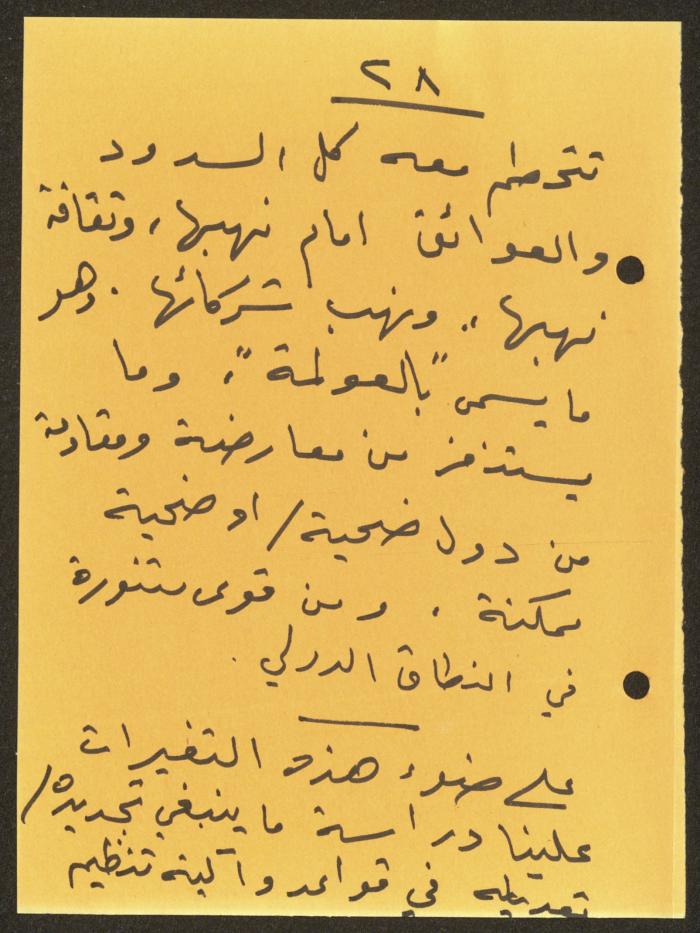 ٢٨
تتحطم معه كل السدود
والعوائق امام نهبها، وثقافة
نهبها، ونهب شركائها. وهو
ما يسمى "بالعولمة"، وما
يستفز من معارضة ومقاومة
من دول ضحية/او ضحية
ممكنة، ومن قوى متنورة
في النطاق الدولي.
على ضوء هذه التغيرات
علينا دراسة ما ينبغي تجديده/
تعديله في قواعد وآلية تنظيم